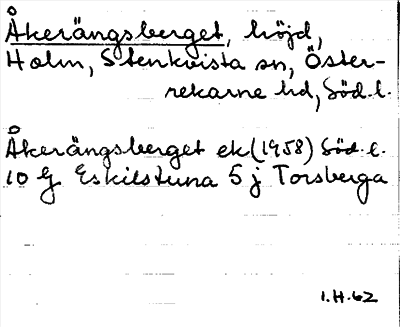 Åkerängsberget, höjd,
Holm, Stenkvista sn, Öster-
rekarne hd, Söd.l.
Åkerängsberget ek (1958) Söd.l.
10 G Eskilstuna 5 j Torsberga
I.H.62